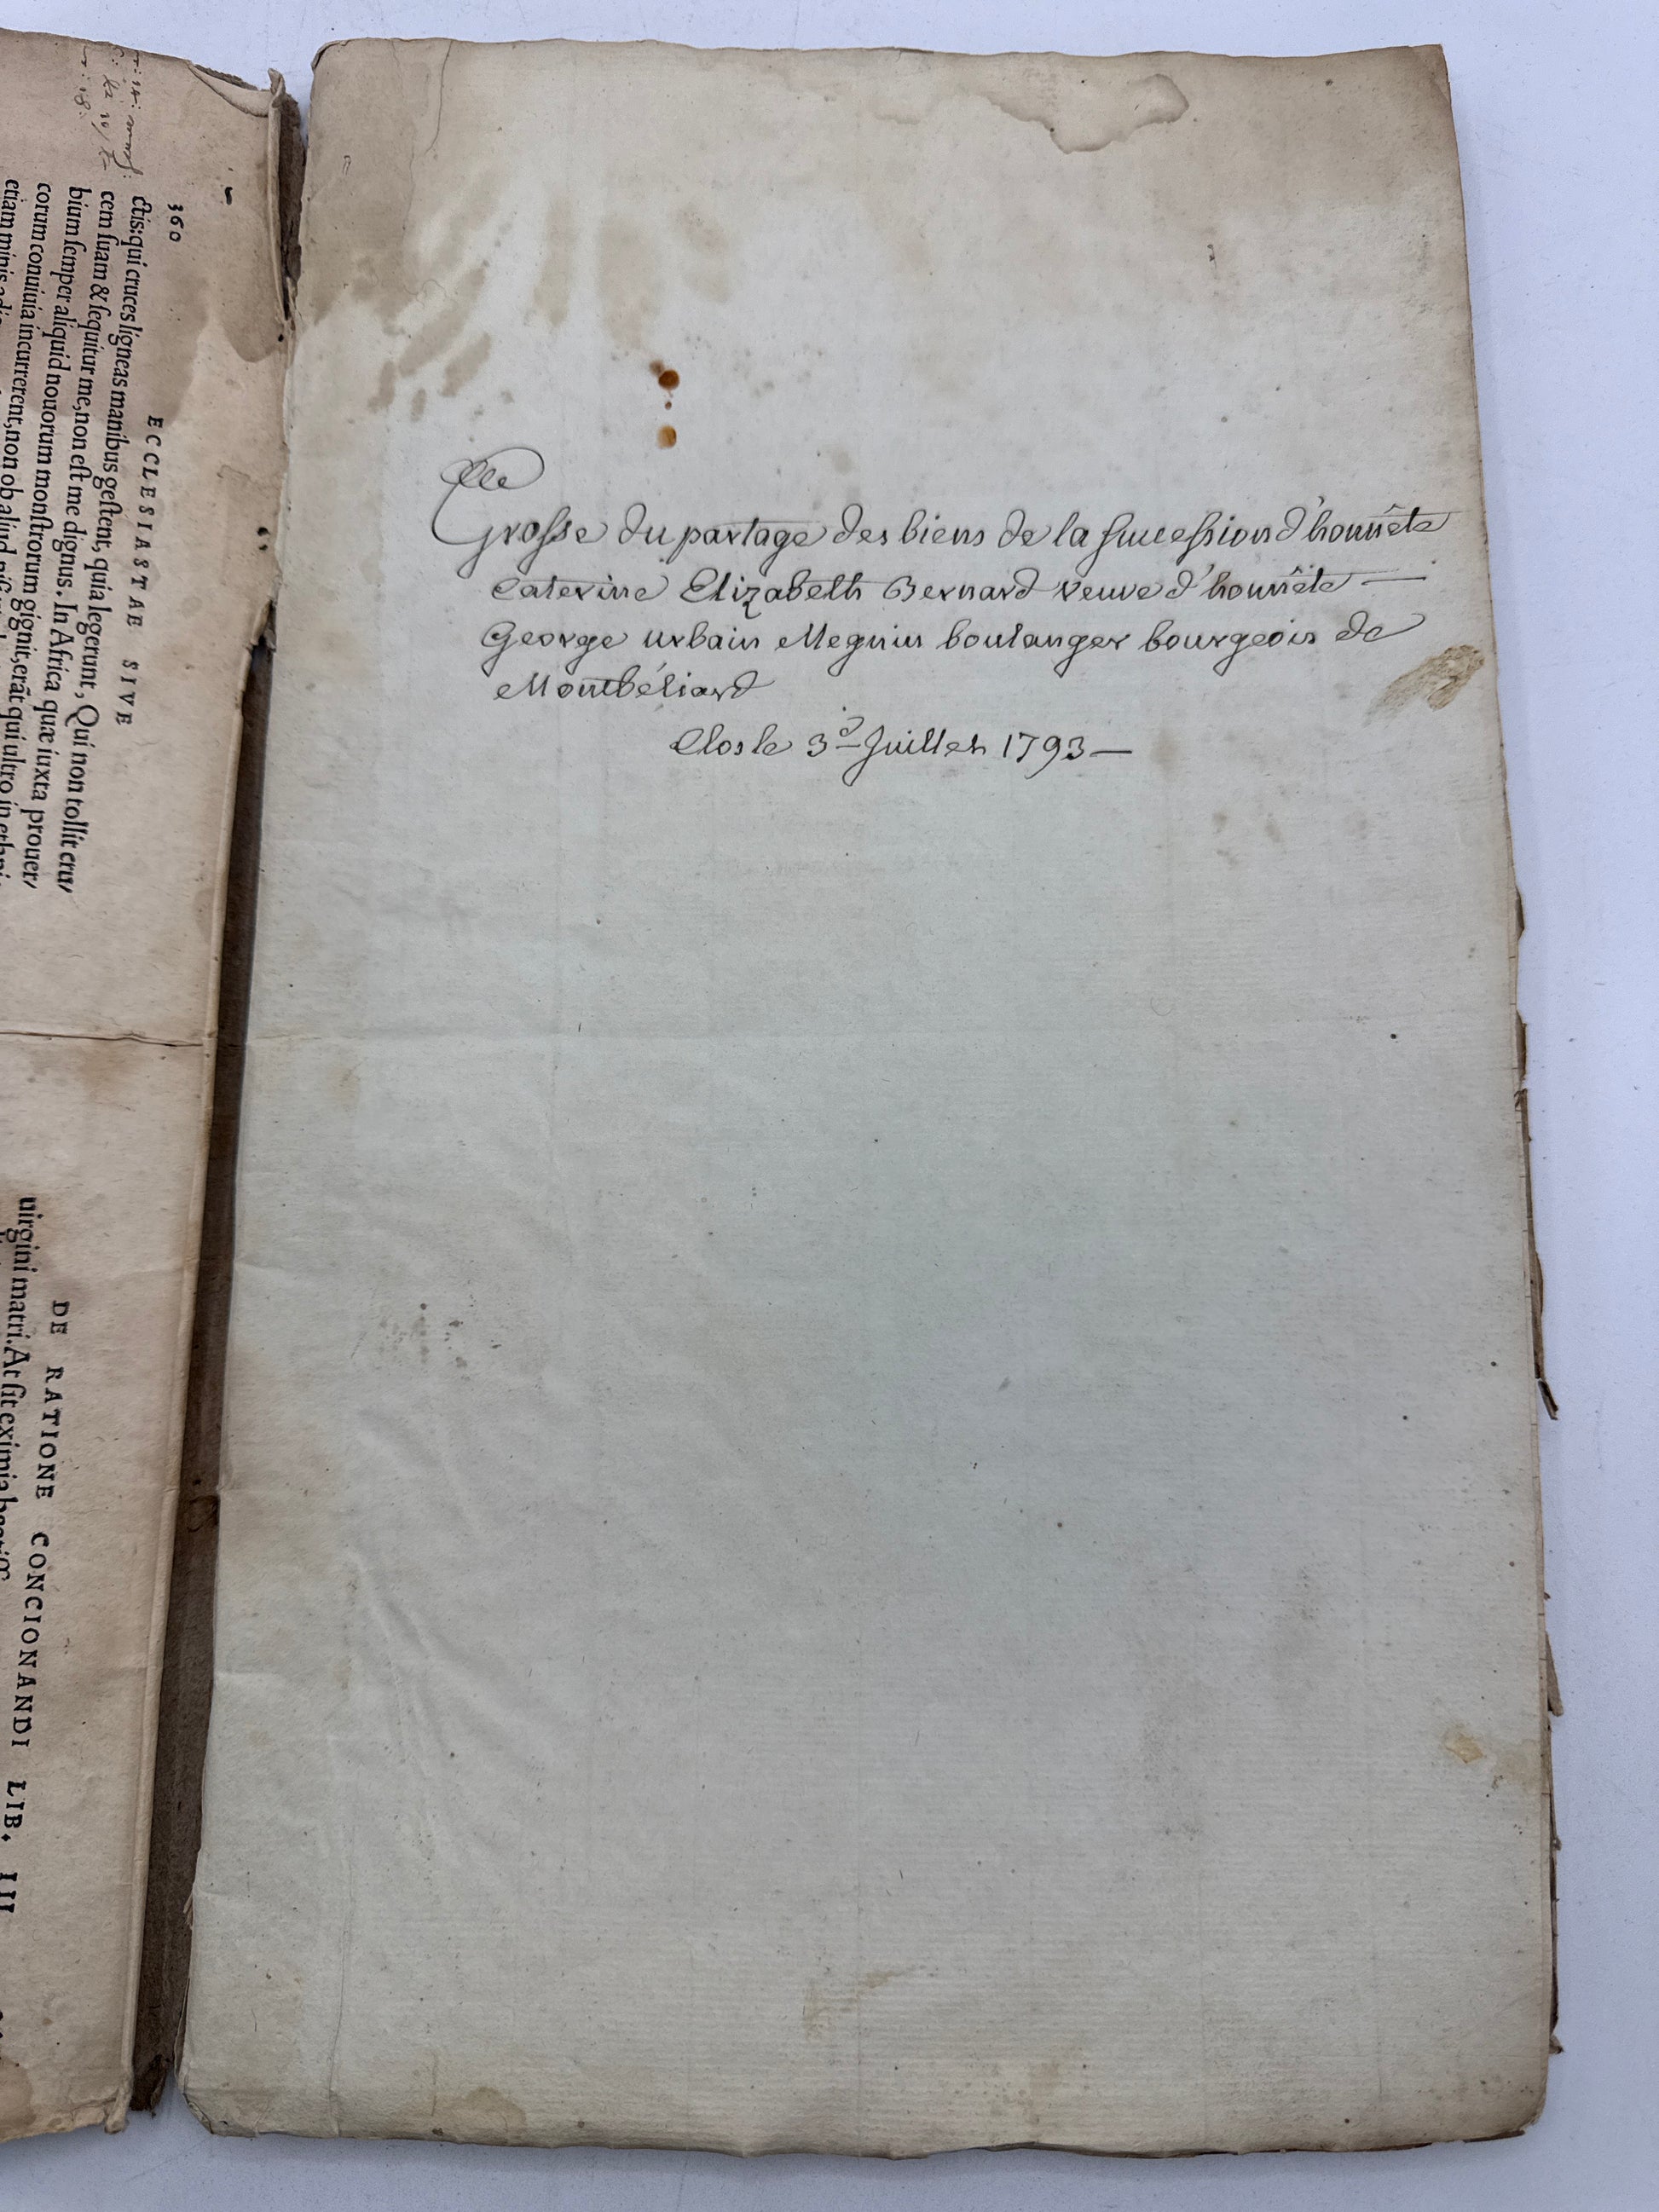 360 ECCLESIASTAE SIVE
ctis: qui cruces ligneas manibus gestent, quia legerunt, Qui non tollit cru/
cem suam & sequitur me, non est me dignus. In Africa quæ iuxta prouer/
bium semper aliquid nouorum monstrorum gignit, erāt qui ultro in ethni
corum conuiuia incurrerent, non ob aliud
etiam minis
DE RATIONE CONCIONANDI LIB. III
uirgini matri. At sit eximia
Grosse du partage des biens de la succession d'honnête
Caterine Elizabeth Bernard veuve d'honnête —
George urbain Megnin boulanger bourgeois de
Montbéliard
Clos le 3.e Juillet 1793 —